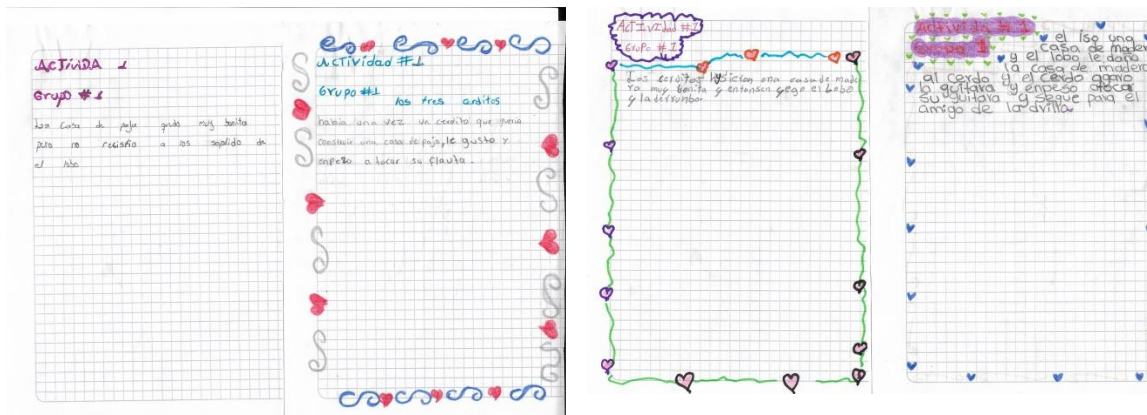 ACTIVIDA 1
Grupo #1
Los Casa de paja qudo muy bonita
pero no resistio a los soplido de
el lobo
Actividad #1
Grupo #1
los tres cerditos
habia una vez un cerdito que queria
construir una casa de paja, le gusto y
empezo a tocar su flauta.
ACTIVIdad #1
Grupo #1
Los cerditos hicieron una casa de made
ra muy bonita y entonses yego el Lobo
y la derrumbo
Actividad #1
Grupo 1
el iso una
casa de madera
y el lobo le daño
la casa de madera
al cerdo y el cerdo agaro
la guitara y enpeso atocar
su guitara y segue para el
amigo de ladrilla